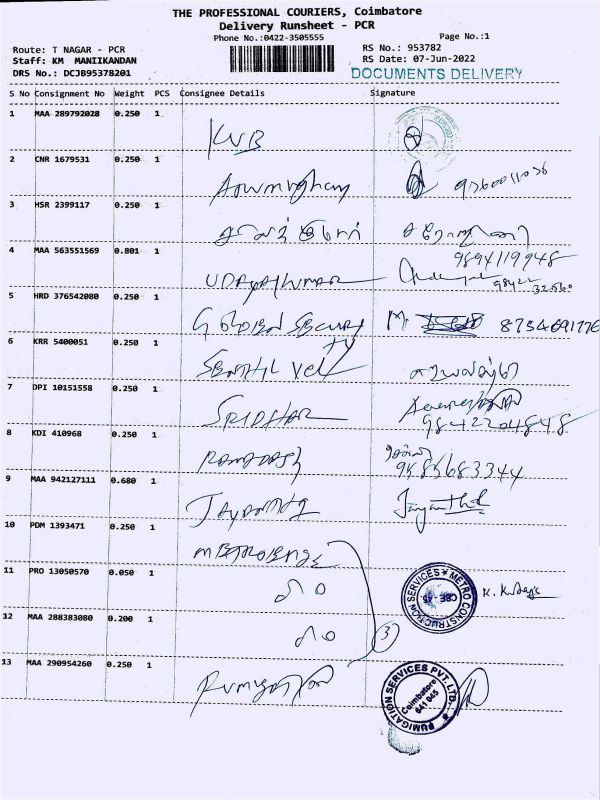 THE PROFESSIONAL COURIERS, Coimbatore
Delivery Runsheet - PCR
Phone No.:0422-3505555 Page No.:1
Route: T NAGAR - PCR RS No.: 953782
Staff: KM MANIIKANDAN RS Date: 07-Jun-2022
DRS No.: DCJB95378201 DOCUMENTS DELIVERY
S No Consignment No Weight PCS Consignee Details Signature
1 MAA 289792028 0.250 1 KVB
2 CNR 1679531 0.250 1
3 HSR 2399117 0.250 1
4 MAA 563551569 0.801 1 UDAYAKUMAR 9894119948
5 HRD 376542080 0.250 1 GOLDEN SECURITY M 8754691776
6 KRR 5400051 0.250 1 SENTHIL VEL
7 DPI 10151558 0.250 1 SRIDHAR 9842204848
8 KDI 410968 0.250 1 RAMADASS 9585683344
9 MAA 942127111 0.680 1 JAYANTHI Jayanthi
10 PDM 1393471 0.250 1
11 PRO 13050570 0.050 1 METRO CONSTRUCTION SERVICES CBE-45
12 MAA 288383080 0.200 1 3
13 MAA 290954260 0.250 1 FUMIGATION SERVICES PVT. LTD. Coimbatore 641 045